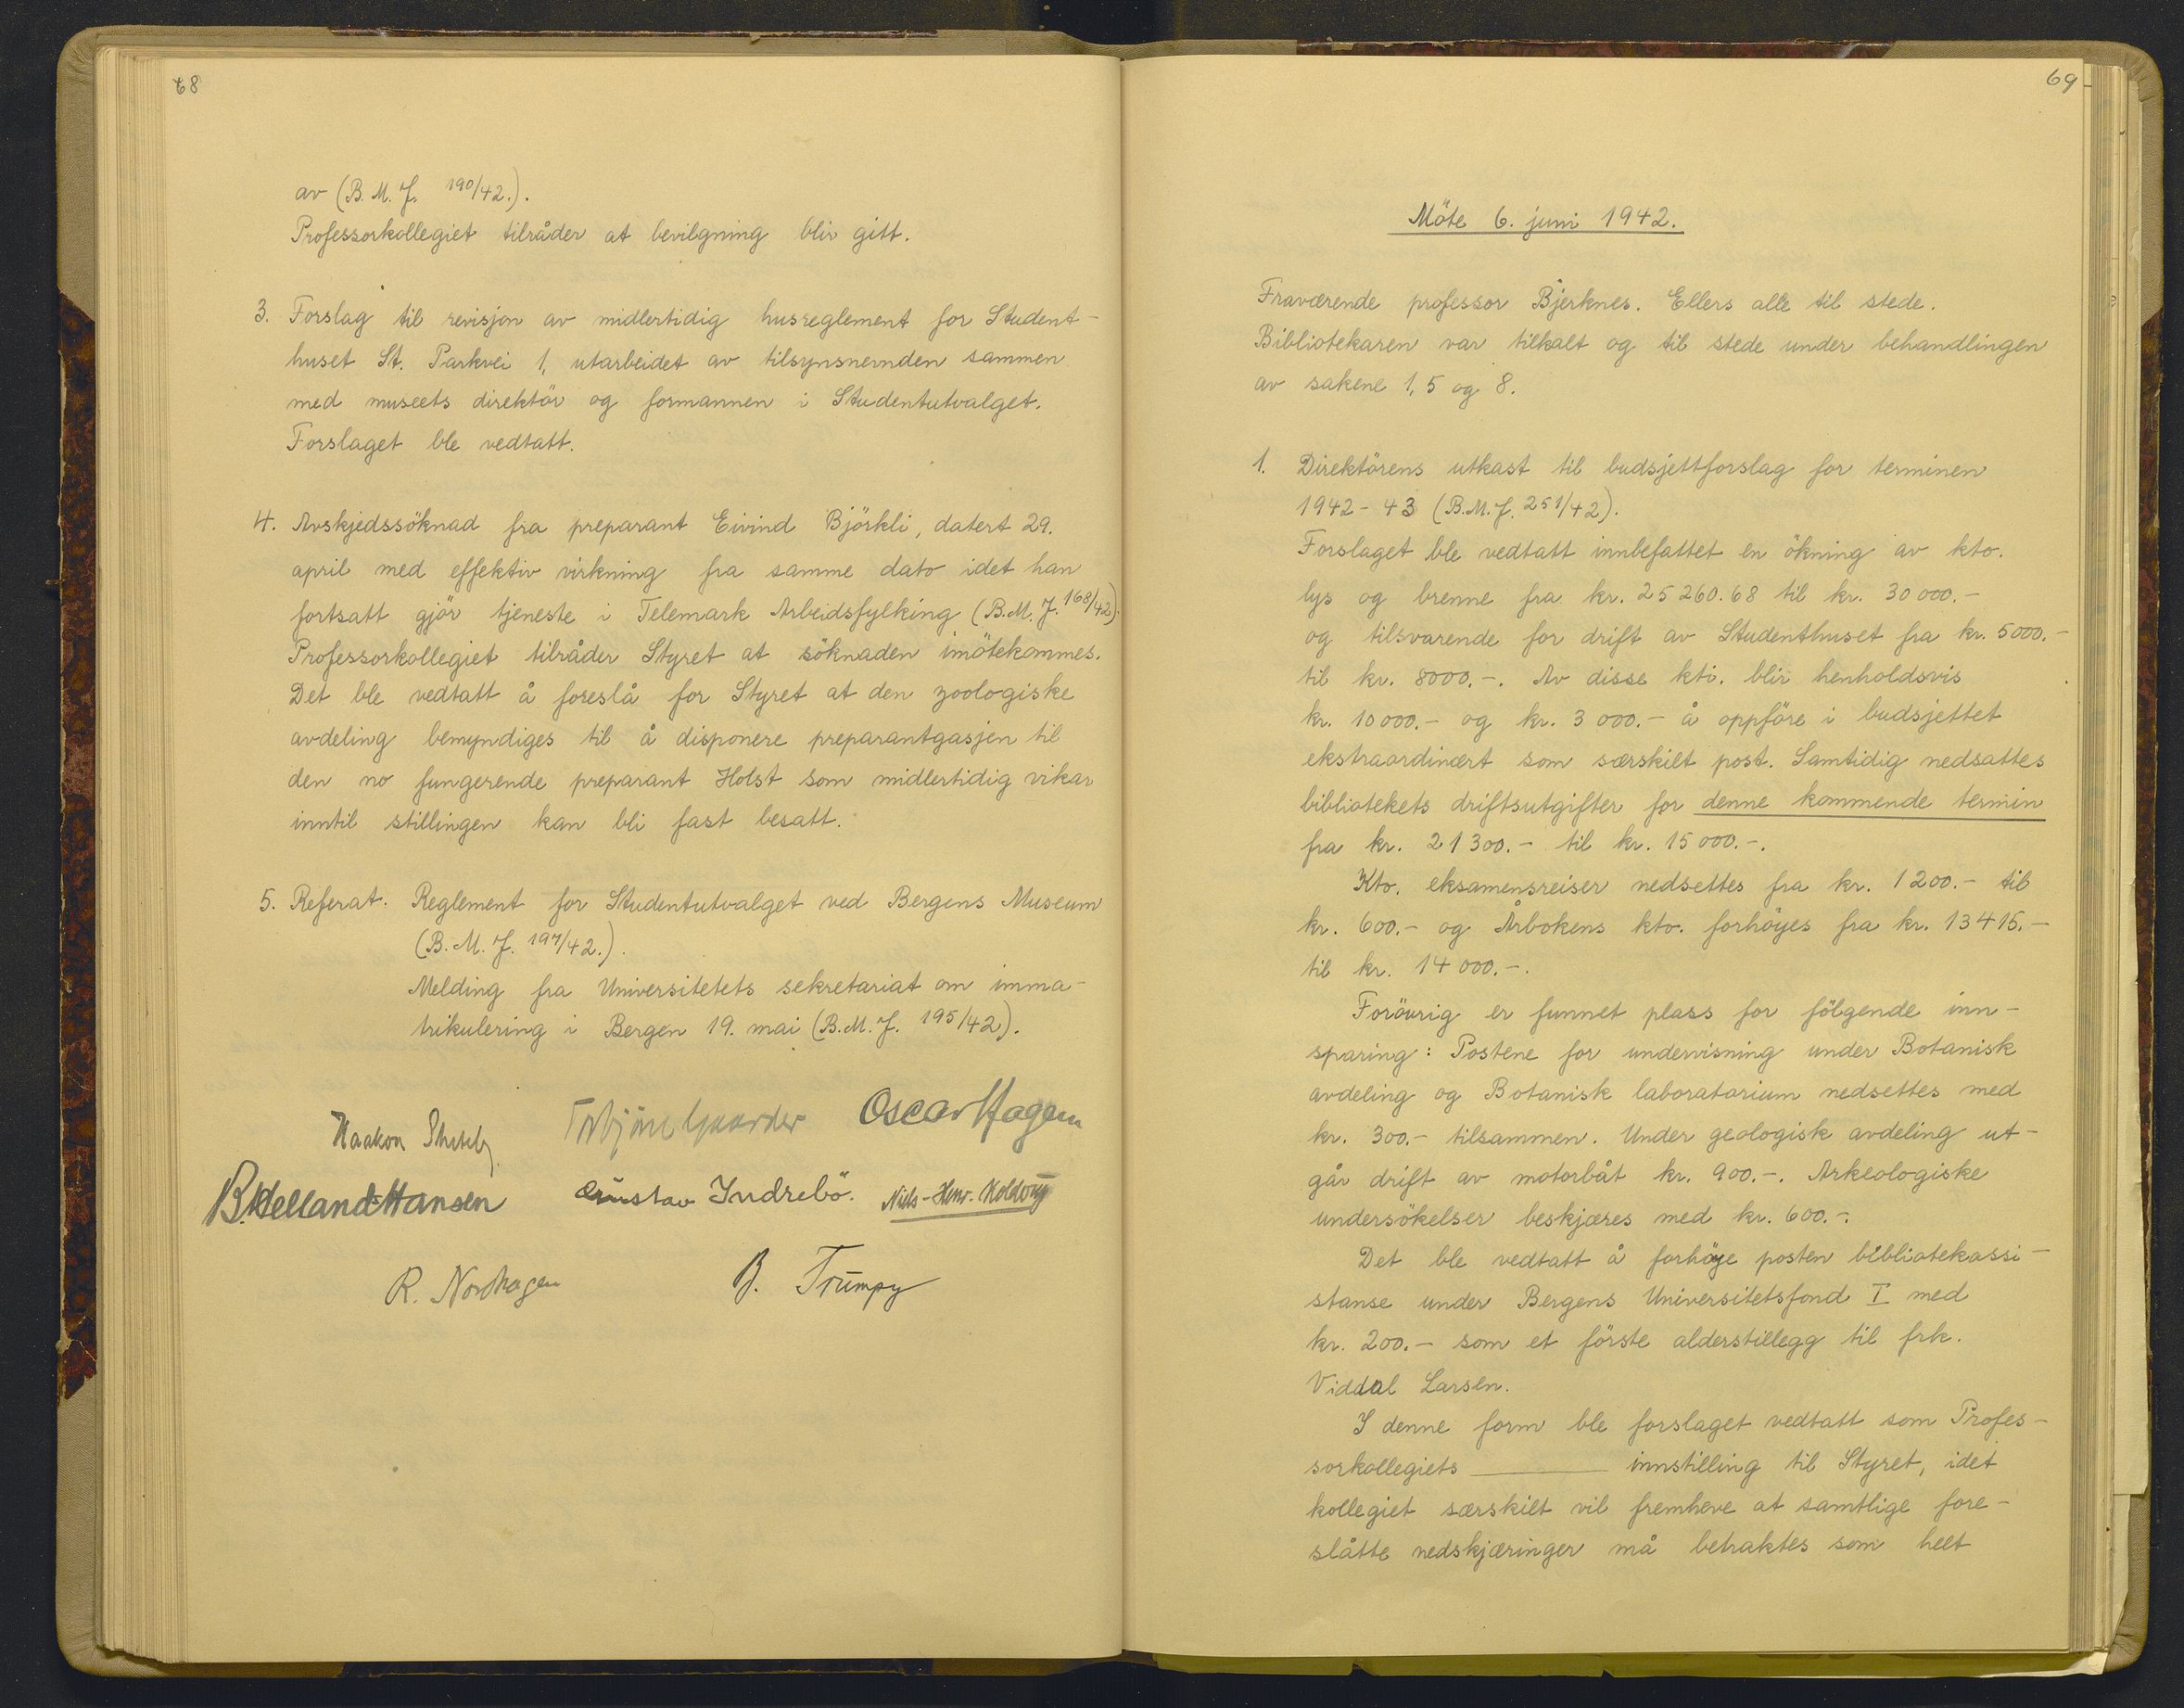 68
av (B. M. J. 190/42.).
Professorkollegiet tilråder at bevilgning blir gitt.
3. Forslag til revisjon av midlertidig husreglement for Student-
huset St. Parkvei 1, utarbeidet av tilsynsnernden sammen
med museets direktör og formannen i Studentutvalget.
Forslaget ble vedtatt.
4. Avskjedssöknad fra preparant Eivind Björkli, datert 29.
april med effektiv virkning fra samme dato idet han
fortsatt gjör tjeneste i Telemark Arbeidsfylking (B.M.J. 168/42).
Professorkollegiet tilråder Styret at söknaden imötekommes.
Det ble vedtatt å foreslå for Styret at den zoologiske
avdeling bemyndiges til å disponere preparantgasjen til
den no fungerende preparant Holst som midlertidig vikar
inntil stillingen kan bli fast besatt.
5. Referat. Reglement for Studentutvalget ved Bergens Museum
(B. M. J. 197/42.).
Melding fra Universitetets sekretariat om imma-
trikulering i Bergen 19. mai (B.M.J. 195/42).
Haakon Shetelig Torbjörn Gaarder Oscar Hagem
B. Helland-Hansen Gustav Indrebö. Niels-Henr. Kolderup
R. Nordhagen B. Trumpy
69
Möte 6. juni 1942.
Fraværende professor Bjerknes. Ellers alle til stede.
Bibliotekaren var tilkalt og til stede under behandlingen
av sakene 1, 5 og 8.
1. Direktörens utkast til budsjettforslag for terminen
1942-43 (B.M.J. 251/42).
Forslaget ble vedtatt innbefattet en ökning av kto.
lys og brenne fra kr. 25260.68 til kr. 30000.-
og tilsvarende for drift av Studenthuset fra kr. 5000.-
til kr. 8000.-. Av disse kti. blir henholdsvis
kr. 10000.- og kr. 3000.- å oppföre i budsjettet
ekstraordinært som særskilt post. Samtidig nedsattes
bibliotekets driftsutgifter for denne kommende termin
fra kr. 21300.- til kr. 15000.-.
Kto. eksamensreiser nedsettes fra kr. 1200.- til
kr. 600.- og Årbokens kto. forhöyes fra kr. 13415.-
til kr. 14000.-.
Forövrig er funnet plass for fölgende inn-
sparing: Postene for undervisning under Botanisk
avdeling og Botanisk laboratorium nedsettes med
kr. 300.- tilsammen. Under geologisk avdeling ut-
går drift av motorbåt kr. 900.-. Arkeologiske
undersökelser beskjæres med kr. 600.-.
Det ble vedtatt å forhöye posten bibliotekassi-
stanse under Bergens Universitetsfond I med
kr. 200.- som et förste alderstillegg til frk.
Viddal Larsen.
I denne form ble forslaget vedtatt som Profes-
sorkollegiets ——— innstilling til Styret, idet
kollegiet særskilt vil fremheve at samtlige fore-
slåtte nedskjæringer må betraktes som helt